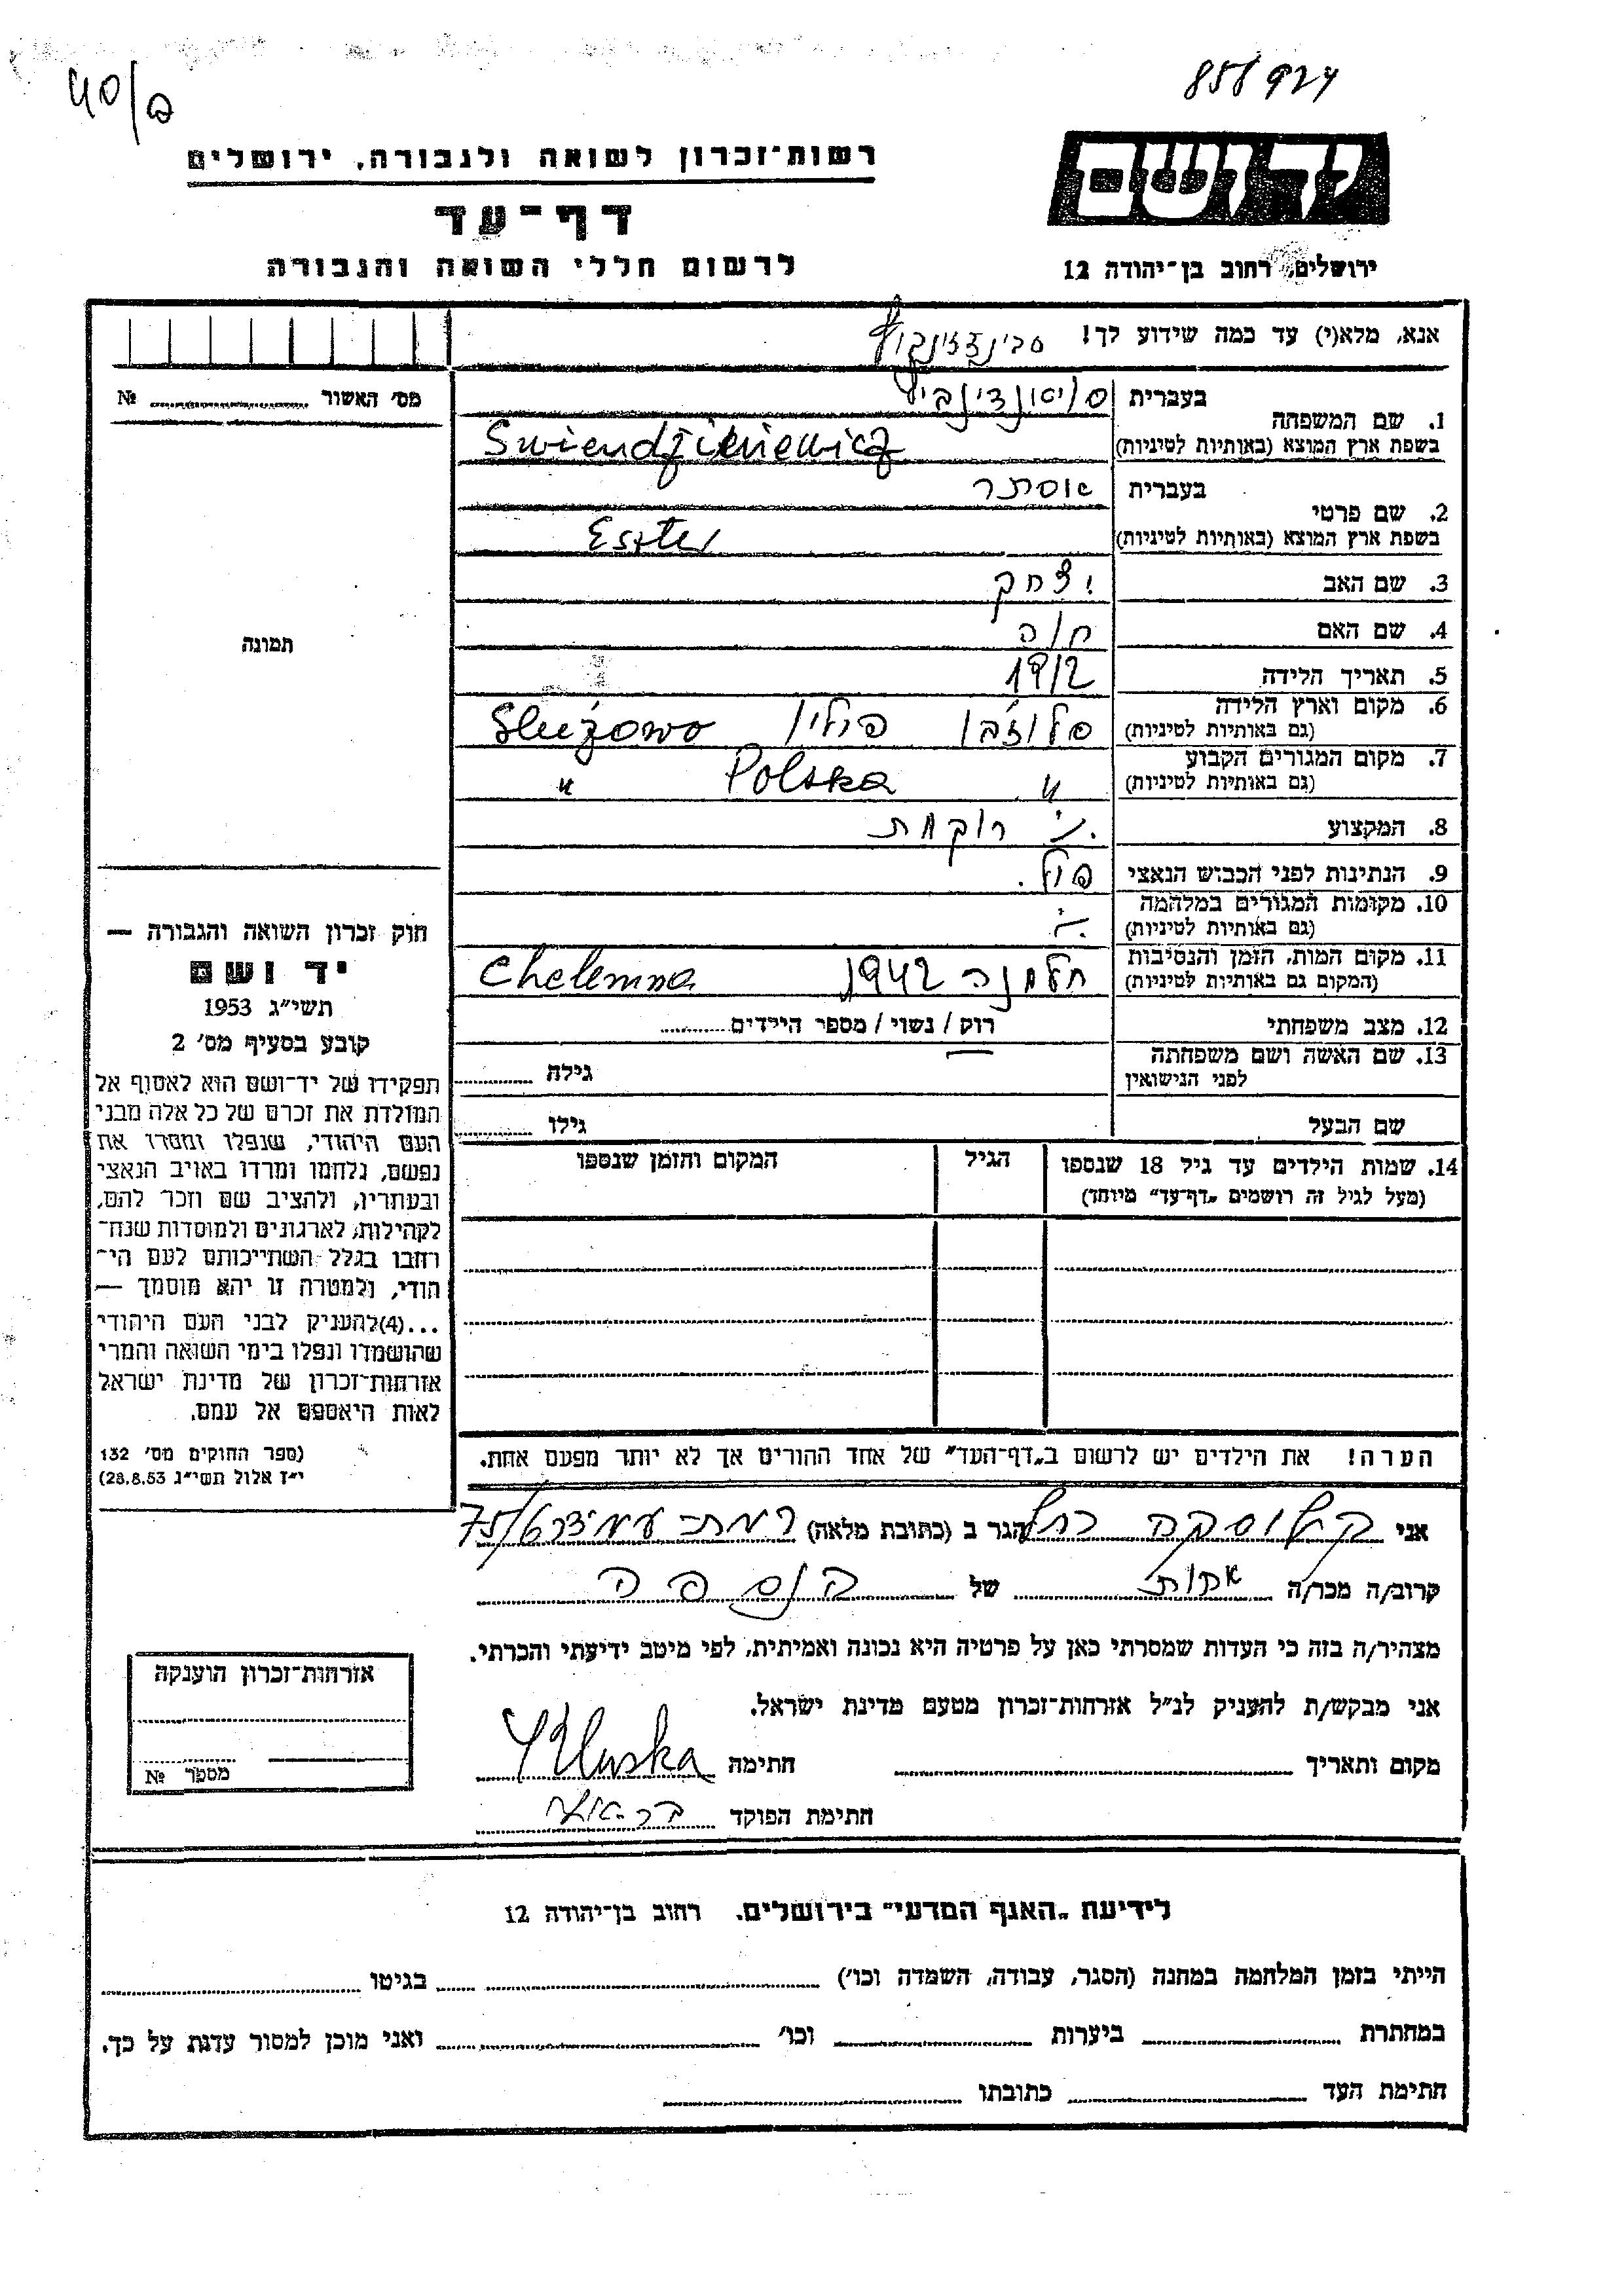 40/פ
85/924
רשות־זכרון לשואה ולגבורה, ירושלים
יד ושם
דף־עד
לרשום חללי השואה והגבורה
ירושלים, רחוב בן־יהודה 12
אנא, מלא(י) עד כמה שידוע לך!
מס' האשור № ..........
1. שם המשפחה
בעברית
בשפת ארץ המוצא (באותיות לטיניות) Swiendzikiewicz
2. שם פרטי
בעברית אסתר
בשפת ארץ המוצא (באותיות לטיניות) Eszter
3. שם האב יצחק
4. שם האם חוה
5. תאריך הלידה 1912
6. מקום וארץ הלידה
(גם באותיות לטיניות) סלוז'בו פולין Służowo
7. מקום המגורים הקבוע
(גם באותיות לטיניות) " Polska "
8. המקצוע רוקחת
9. הנתינות לפני הכבוש הנאצי פול.
10. מקומות המגורים במלחמה
(גם באותיות לטיניות)
11. מקום המות, הזמן והנסיבות
(המקום גם באותיות לטיניות) חלמנה 1942 Chelemna
12. מצב משפחתי רוק / נשוי / מספר הילדים ..........
13. שם האשה ושם משפחתה
לפני הנישואין
גילה ..........
שם הבעל גילו ..........
14. שמות הילדים עד גיל 18 שנספו
(מעל לגיל זה רושמים „דף־עד" מיוחד)
הגיל
המקום והזמן שנספו
הערה! את הילדים יש לרשום ב„דף־העד" של אחד ההורים אך לא יותר מפעם אחת.
תמונה
חוק זכרון השואה והגבורה —
יד ושם
תשי"ג 1953
קובע בסעיף מס' 2
תפקידו של יד־ושם הוא לאסוף אל
המולדת את זכרם של כל אלה מבני
העם היהודי, שנפלו ומסרו את
נפשם, נלחמו ומרדו באויב הנאצי
ובעוזריו, ולהציב שם וזכר להם,
לקהילות, לארגונים ולמוסדות שנח־
רבו בגלל השתייכותם לעם הי־
הודי, ולמטרה זו יהא מוסמך —
...(4) להעניק לבני העם היהודי
שהושמדו ונפלו בימי השואה והמרי
אזרחות־זכרון של מדינת ישראל
לאות היאספם אל עמם.
(ספר החוקים מס' 132
י"ז אלול תשי"ג 28.8.53)
אני קלוסקה רחל הגר ב (כתובת מלאה) רמת עמידר 75/
קרוב/ה מכר/ה אחות של הנספה
מצהיר/ה בזה כי העדות שמסרתי כאן על פרטיה היא נכונה ואמיתית, לפי מיטב ידיעתי והכרתי.
אני מבקש/ת להעניק לנ"ל אזרחות־זכרון מטעם מדינת ישראל.
מקום ותאריך .......... חתימה Kluska
חתימת הפוקד
אזרחות־זכרון הוענקה
מספר №
לידיעת „האגף המדעי" בירושלים. רחוב בן־יהודה 12
הייתי בזמן המלחמה במחנה (הסגר, עבודה, השמדה וכו') .......... בגיטו ..........
במחתרת .......... ביערות .......... וכו' .......... ואני מוכן למסור עדות על כך.
חתימת העד .......... כתובתו ..........